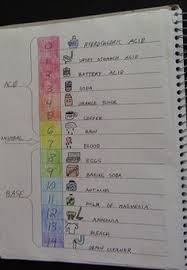 0 HYDROCHLORIC ACID
1 STOMACH ACID
2 BATTERY ACID
ACID
3 SODA
4 ORANGE JUICE
5 COFFEE
6 RAIN
NEUTRAL
7 BLOOD
8 EGGS
9 BAKING SODA
10 ANTACIDS
BASE
11 MILK OF MAGNESIA
12 AMMONIA
13 BLEACH
14 DRAIN CLEANER